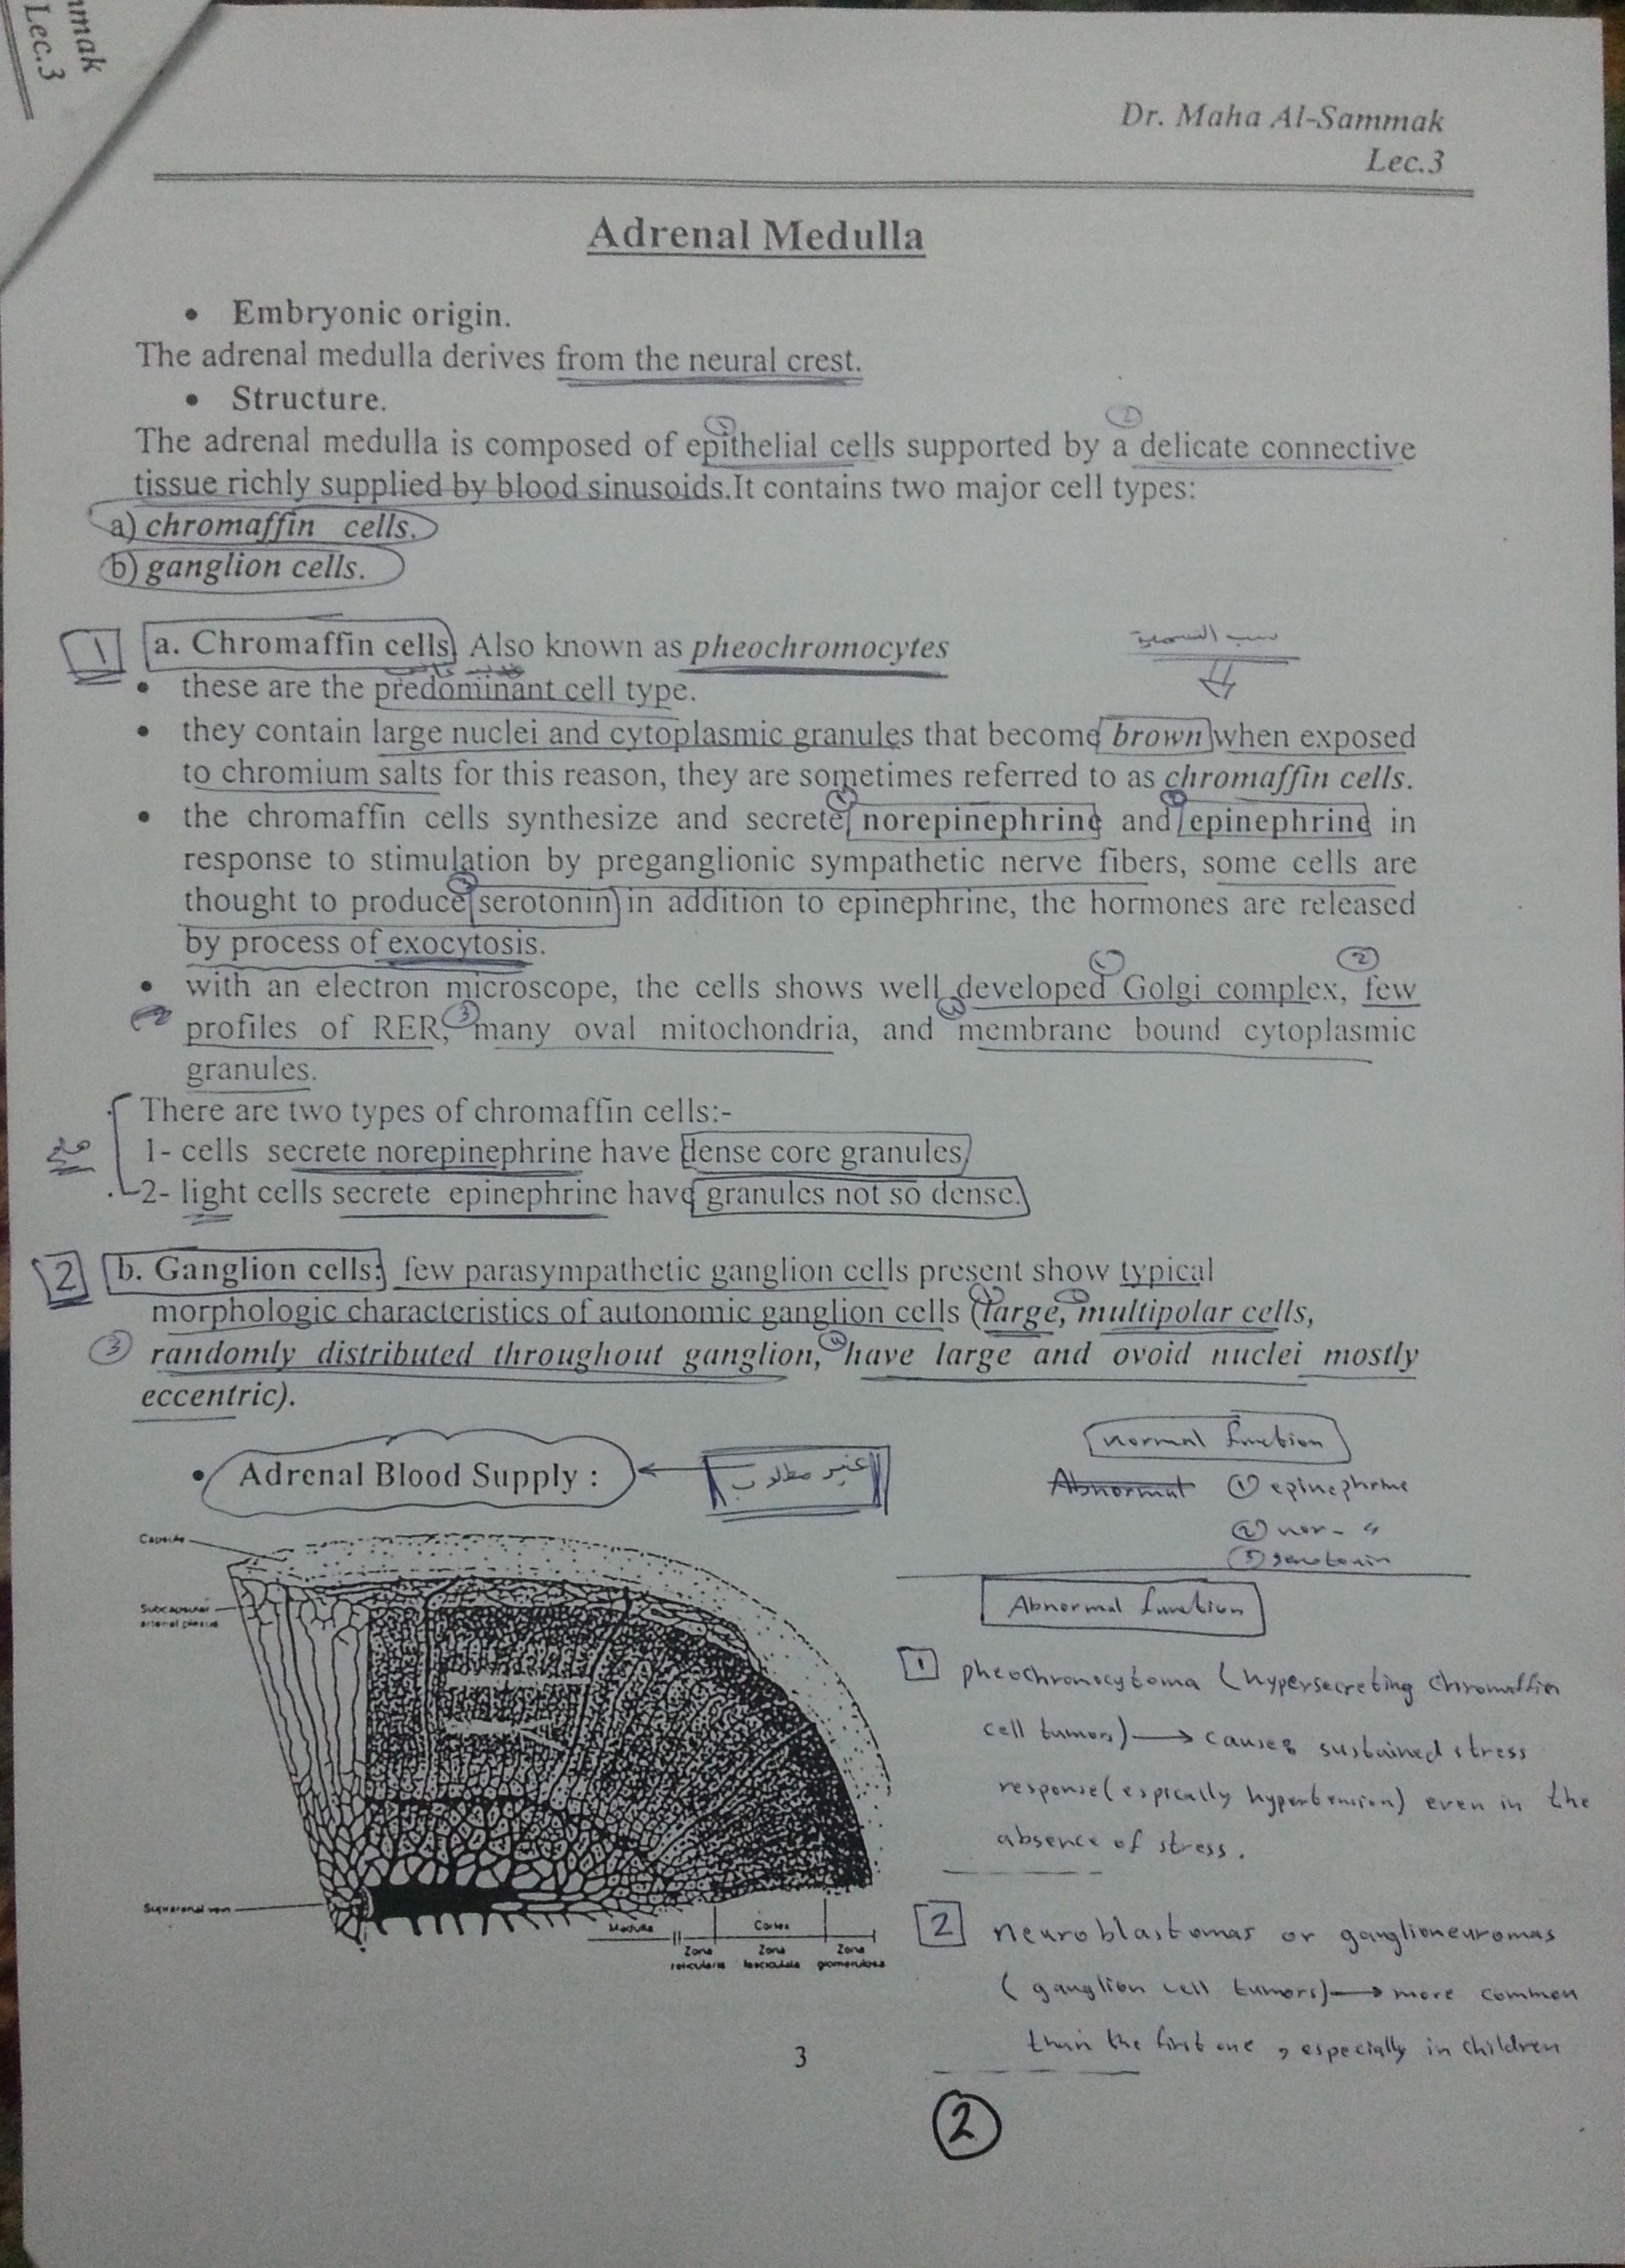 mmak
Lec.3
Dr. Maha Al-Sammak
Lec.3
Adrenal Medulla
• Embryonic origin.
The adrenal medulla derives from the neural crest.
• Structure.
The adrenal medulla is composed of epithelial cells supported by a delicate connective
tissue richly supplied by blood sinusoids.It contains two major cell types:
a) chromaffin cells.
b) ganglion cells.
1 a. Chromaffin cells Also known as pheochromocytes
سبب التسمية
• these are the predominant cell type.
• they contain large nuclei and cytoplasmic granules that become brown when exposed
to chromium salts for this reason, they are sometimes referred to as chromaffin cells.
• the chromaffin cells synthesize and secrete norepinephrine and epinephrine in
response to stimulation by preganglionic sympathetic nerve fibers, some cells are
thought to produce serotonin in addition to epinephrine, the hormones are released
by process of exocytosis.
• with an electron microscope, the cells shows well developed Golgi complex, few
profiles of RER, many oval mitochondria, and membrane bound cytoplasmic
granules.
There are two types of chromaffin cells:-
1- cells secrete norepinephrine have dense core granules
2- light cells secrete epinephrine have granules not so dense.
2 b. Ganglion cells: few parasympathetic ganglion cells present show typical
morphologic characteristics of autonomic ganglion cells (large, multipolar cells,
randomly distributed throughout ganglion, have large and ovoid nuclei mostly
eccentric).
• Adrenal Blood Supply :
غير مطلوب
normal function
Abnormal ① epinephrine
② nor- "
③ serotonin
Abnormal function
1 pheochromocytoma (hypersecreting chromaffin
cell tumors) → causes sustained stress
response (espically hypertension) even in the
absence of stress.
2 neuroblastomas or ganglioneuromas
(ganglion cell tumors) → more common
than the first one, especially in children
Capsule
Subcapsular
arterial plexus
Suprarenal vein
Medulla
Cortex
Zona
reticularis
Zona
fasciculata
Zona
glomerulosa
3
2